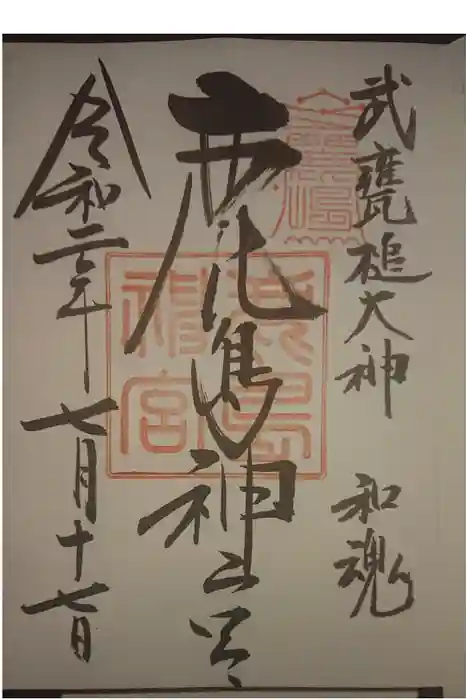 武甕槌大神 和魂
鹿島神宮
令和二年七月十七日
鹿島
神宮